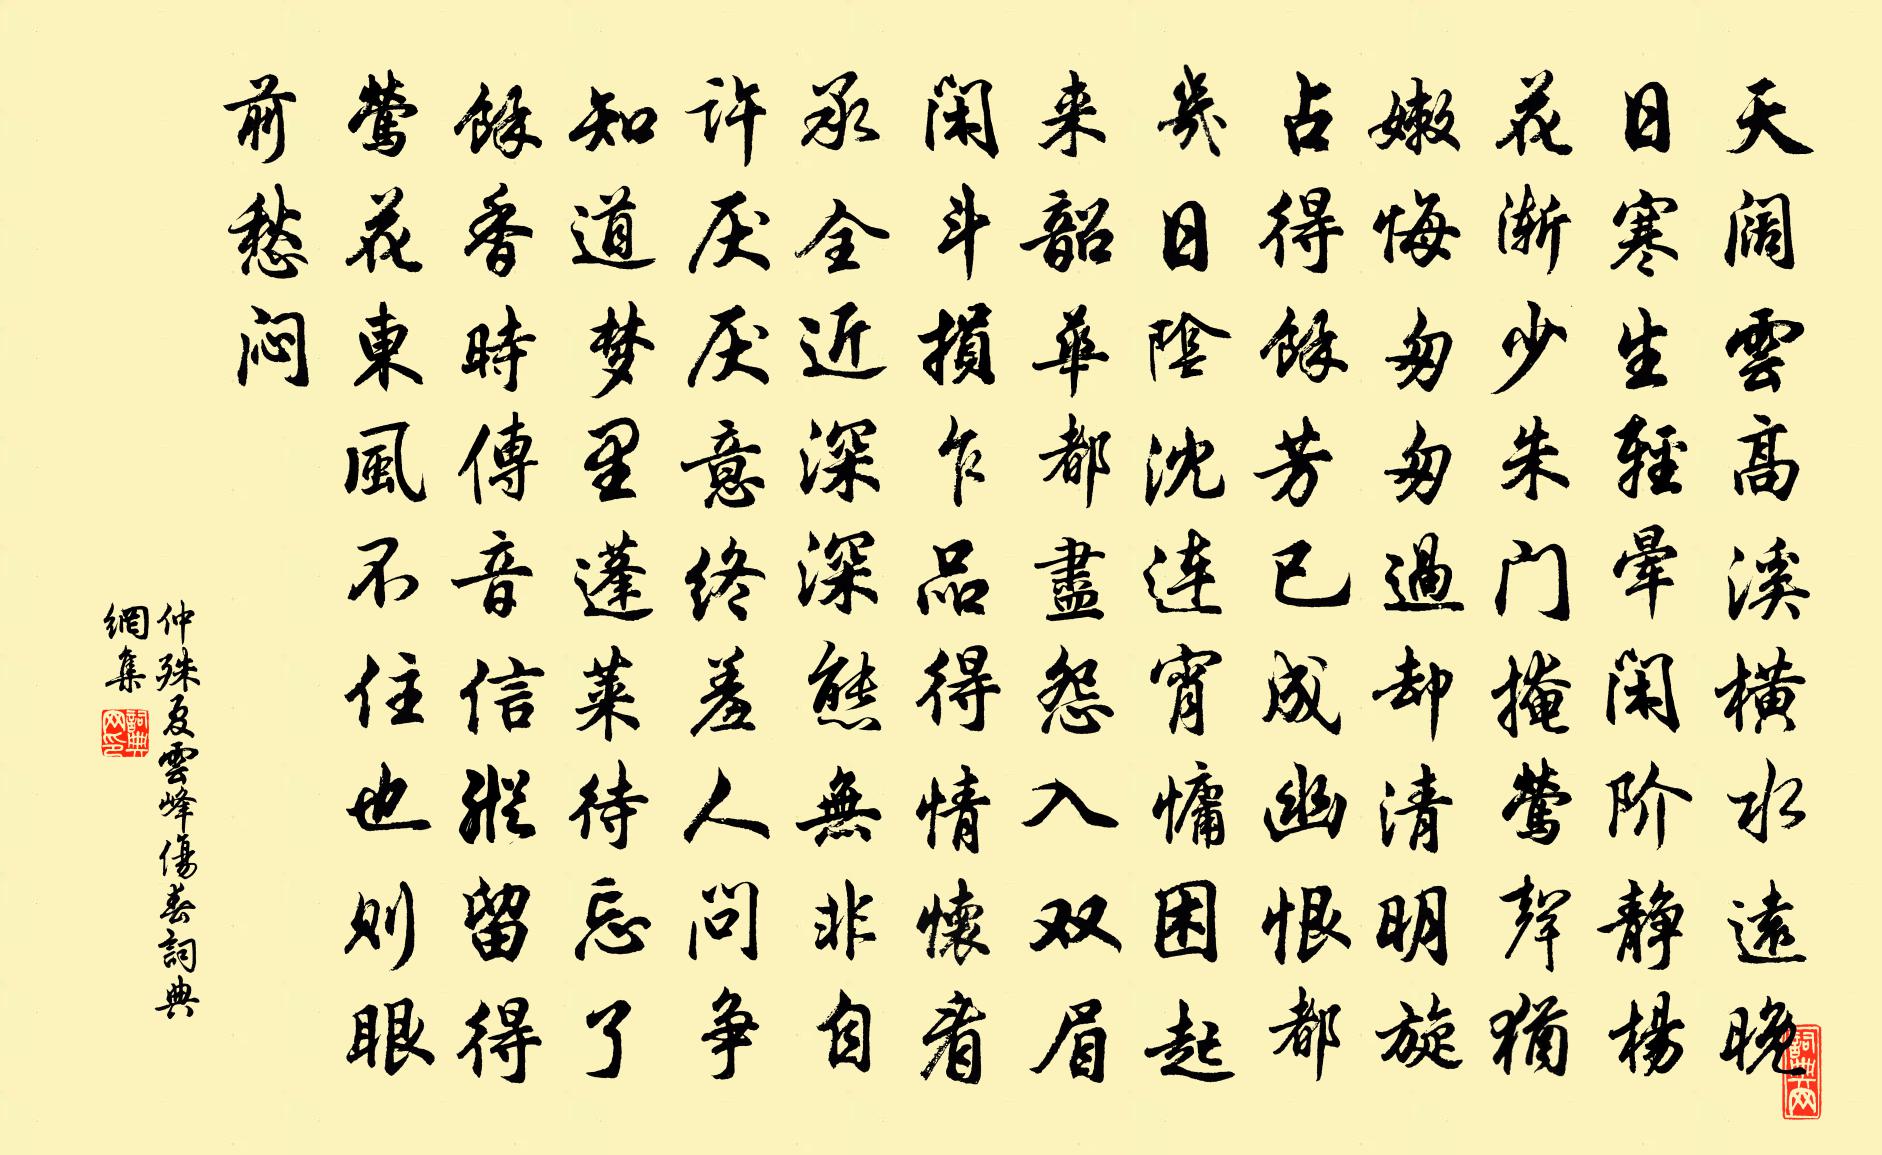 天阔雲高溪横水遠晚
日寒生輕暈闲阶静楊
花渐少朱门掩莺聲猶
嫩悔匆匆過却清明旋
占得餘芳已成幽恨都
幾日陰沈连宵慵困起
来韶華都盡怨入双眉
闲斗損乍品得情懷看
承全近深深態無非自
许厌厌意终羞人问争
知道梦里蓬莱待忘了
餘香時傳音信縱留得
莺花東風不住也则眼
前愁闷
仲殊夏雲峰傷春詞典
網集
詞典
网印
詞典网